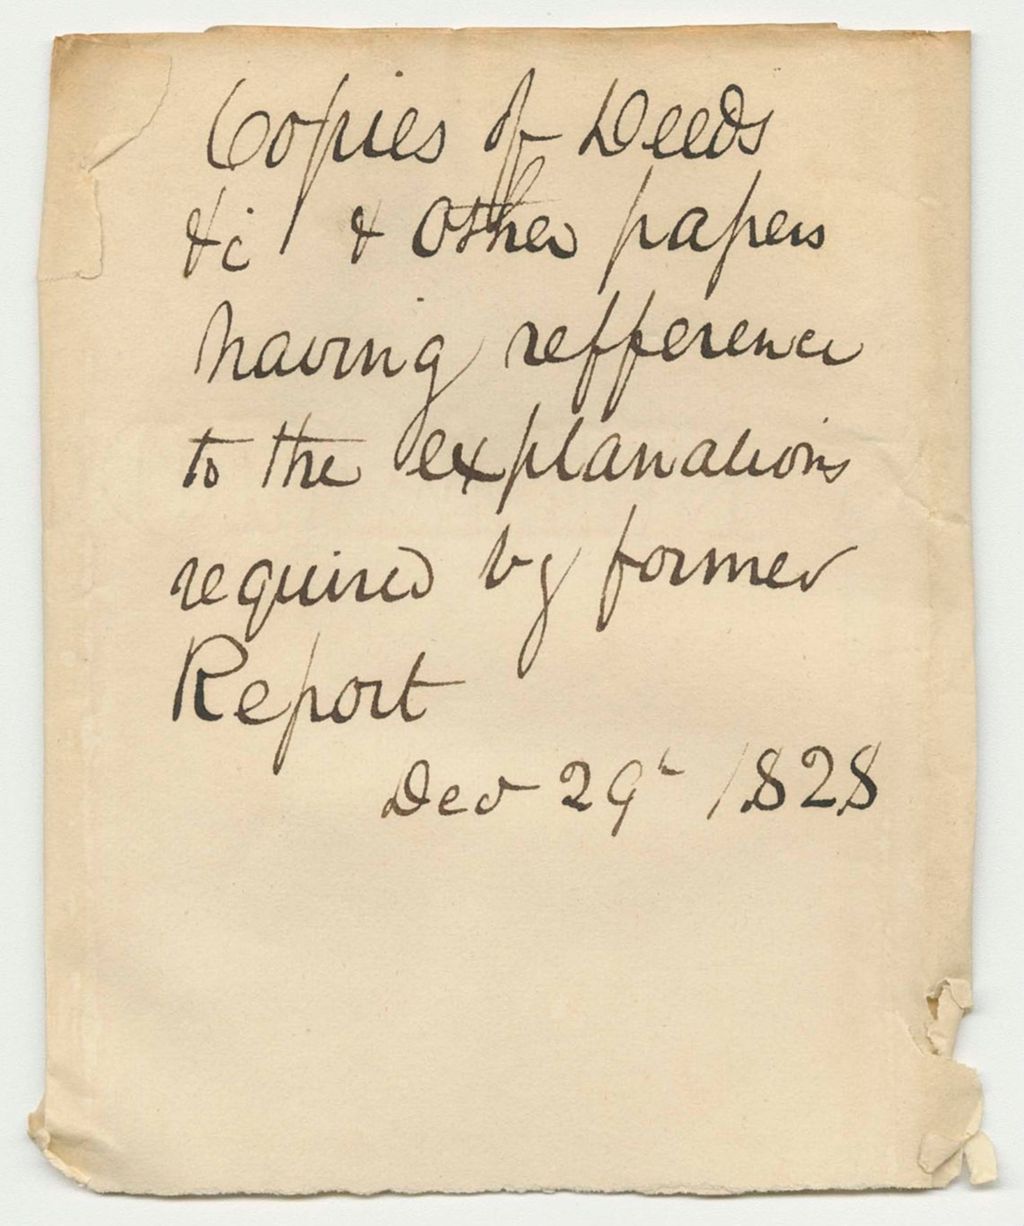 Copies of Deeds
&c & Other papers
having refference
to the explanations
required by former
Report
Dec 29th 1828